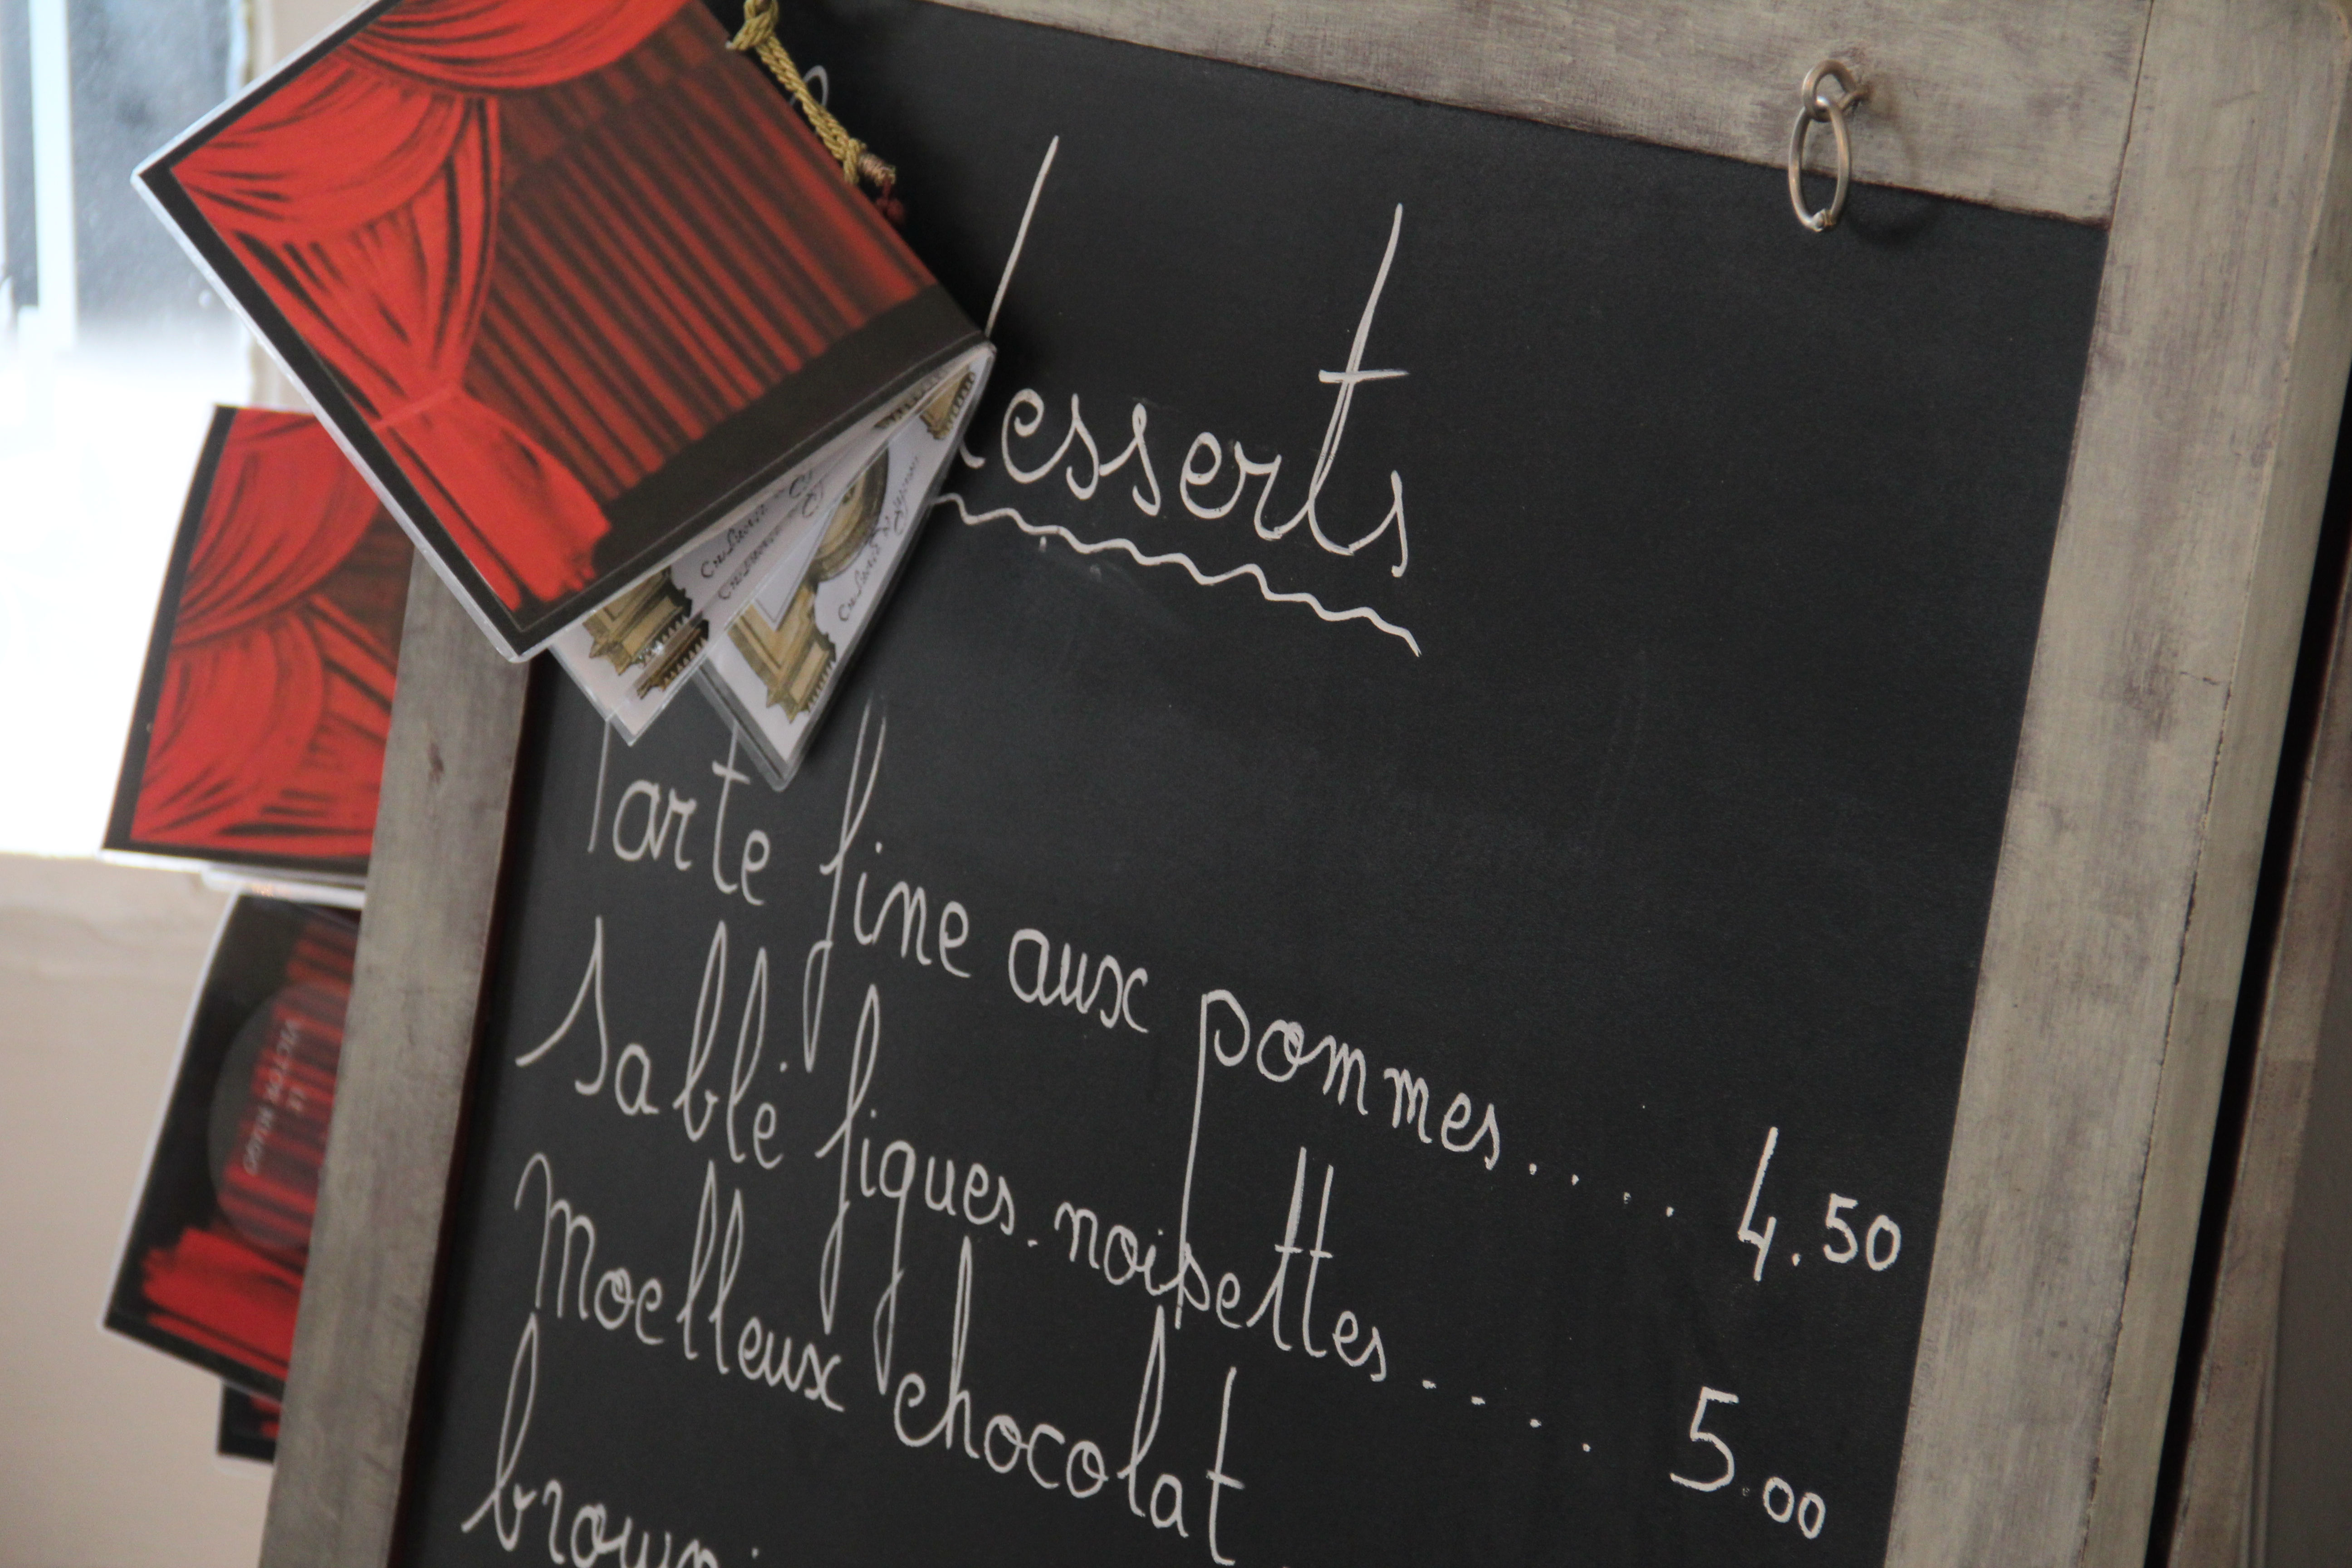 desserts
Tarte fine aux pommes.... 4.50
Sablé figues. noisettes.... 5.00
Moelleux chocolat
brown
VICTOR HUGO